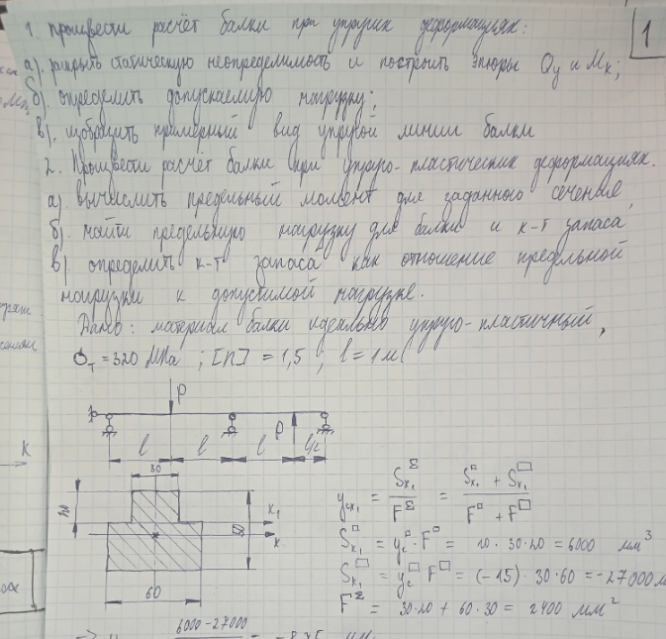 1. произвести расчёт балки при упругих деформациях:
1
а). раскрыть статическую неопределимость и построить эпюры Qy и Mк;
б). определить допускаемую нагрузку;
в). изобразить примерный вид упругой линии балки
2. Произвести расчёт балки при упруго-пластических деформациях.
а). вычислить предельный момент для заданного сечения,
б). найти предельную нагрузку для балки и к-т запаса
в). определить к-т запаса как отношение предельной
нагрузки к допустимой нагрузке.
Дано: материал балки идеально упруго-пластичный,
σт = 320 МПа ; [n] = 1,5 ; l = 1 м
P
P
l l l
30
x1
x
60
K
ycx1 = Sx1 / F = Sx1 + Sx1 / F + F
Sx1 = yc · F = 10 · 30 · 20 = 6000 мм³
Sx1 = yc F = (-15) · 30 · 60 = -27000
F = 30·20 + 60·30 = 2400 мм²
6000-27000